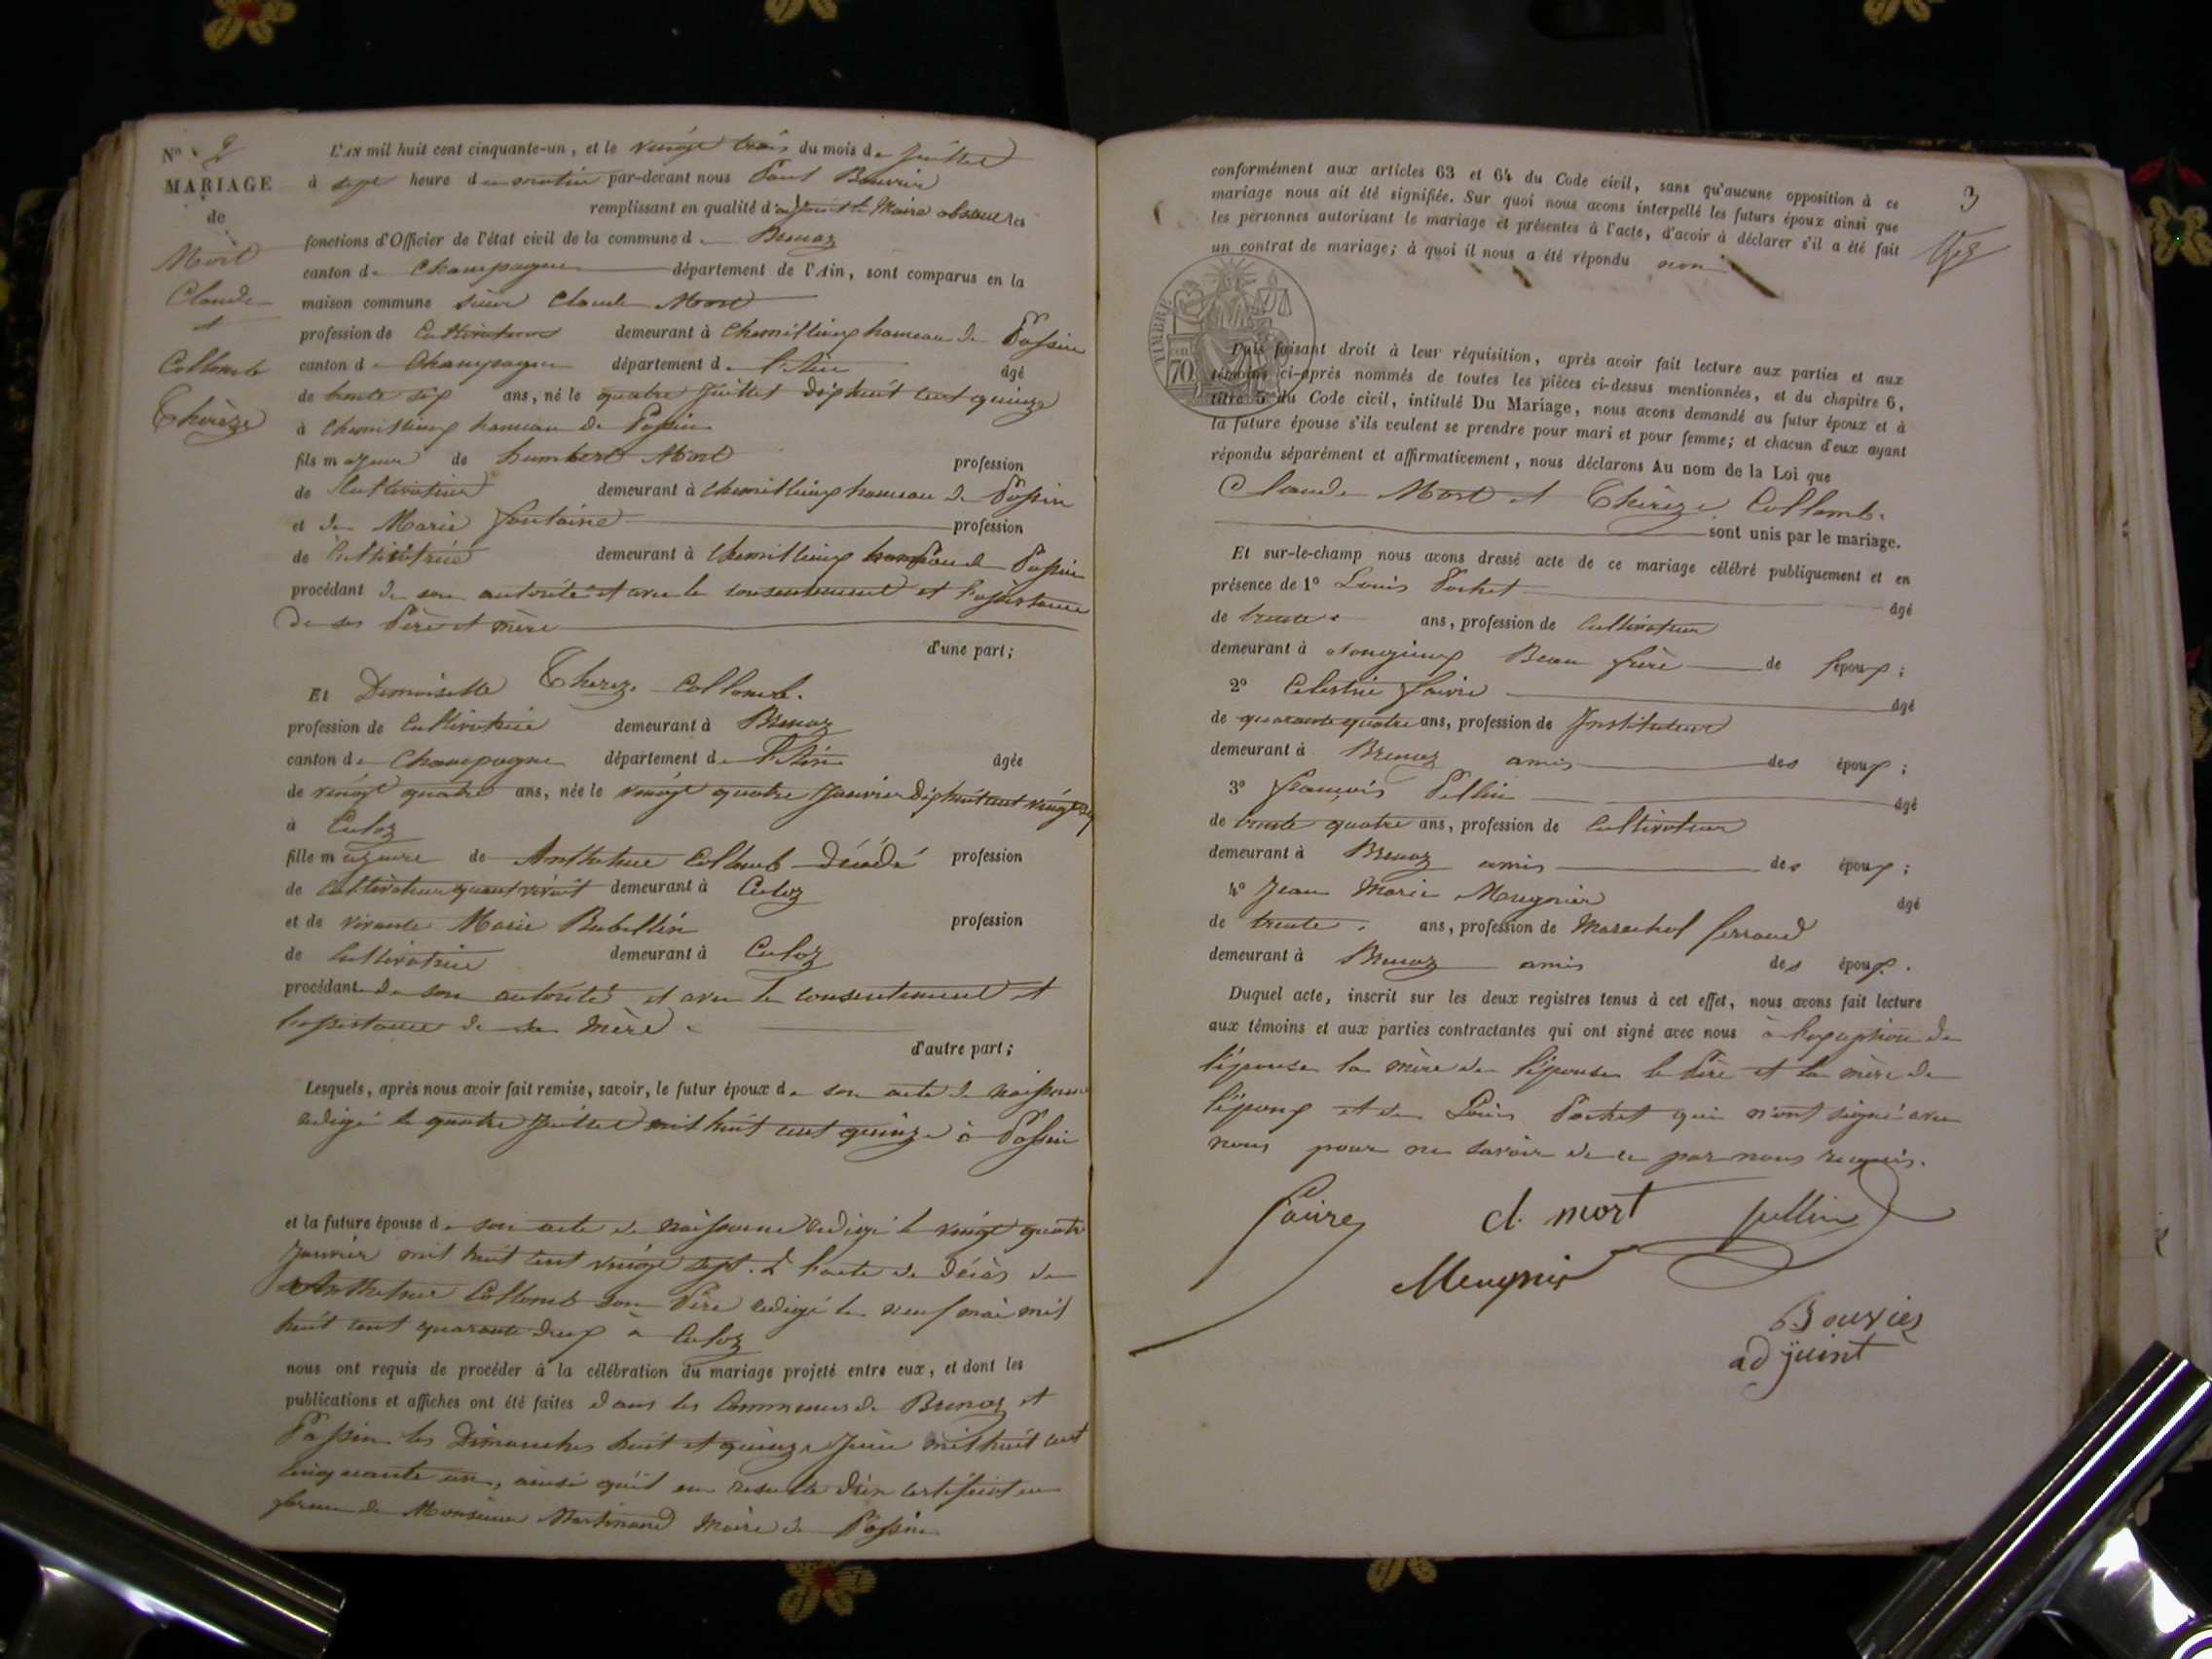 N° 2
MARIAGE
de
Mort
Claude
et
Collomb
Thérèze
L'AN mil huit cent cinquante-un, et le vingt trois du mois de juillet
à sept heure du matin par-devant nous Paul Bouvier
remplissant en qualité d'adjoint le Maire absent les
fonctions d'Officier de l'état civil de la commune de Brenaz
canton de Champagne département de l'Ain, sont comparus en la
maison commune sieur Claude Mort
profession de Cultivateur demeurant à Chemillieux hameau de Passin
canton de Champagne département de l'Ain âgé
de trente six ans, né le quatre juillet dix huit cent quinze
à Chemillieux hameau de Passin
fils majeur de humbert Mort profession
de Cultivateur demeurant à Chemillieux hameau de Passin
et de Marie fontaine profession
de Cultivatrice demeurant à Chemillieux hameau de Passin
procédant de son autorité et avec le consentement et l'assistance
de ses Père et mère
d'une part;
Et Demoiselle Thérèze Collomb.
profession de Cultivatrice demeurant à Brenaz
canton de Champagne département de l'Ain âgée
de vingt quatre ans, née le vingt quatre janvier dix huit cent vingt sept
à Culoz
fille majeure de Anthelme Collomb Décédé profession
de Cultivateur quant vivait demeurant à Culoz
et de vivante Marie Rubellin profession
de Cultivatrice demeurant à Culoz
procédant de son autorité et avec le consentement et
l'assistance de sa Mère.
d'autre part;
Lesquels, après nous avoir fait remise, savoir, le futur époux de son acte de naissance
redigé le quatre juillet mil huit cent quinze à Passin
et la future épouse de son acte de naissance redigé le vingt quatre
janvier mil huit cent vingt sept. & l'acte de Décès de
Anthelme Collomb son Père redigé le neuf mai mil
huit cent quarante deux à Culoz
nous ont requis de procéder à la célébration du mariage projeté entre eux, et dont les
publications et affiches ont été faites dans les Communes de Brenaz et
Passin les Dimanches huit et quinze juin mil huit cent
cinquante un, ainsi qu'il en resulte d'un certificat en
forme de Monsieur Martinand Maire de Passin
conformément aux articles 63 et 64 du Code civil, sans qu'aucune opposition à ce
mariage nous ait été signifiée. Sur quoi nous avons interpellé les futurs époux ainsi que
les personnes autorisant le mariage et présentes à l'acte, d'avoir à déclarer s'il a été fait
un contrat de mariage; à quoi il nous a été répondu non
3
TIMBRE
70
Puis faisant droit à leur réquisition, après avoir fait lecture aux parties et aux
témoins ci-après nommés de toutes les pièces ci-dessus mentionnées, et du chapitre 6,
titre 5 du Code civil, intitulé Du Mariage, nous avons demandé au futur époux et à
la future épouse s'ils veulent se prendre pour mari et pour femme; et chacun d'eux ayant
répondu séparément et affirmativement, nous déclarons Au nom de la Loi que
Claude Mort et Thérèze Collomb.
sont unis par le mariage.
Et sur-le-champ nous avons dressé acte de ce mariage célébré publiquement et en
présence de 1° Louis Pochet âgé
de trente ans, profession de Cultivateur
demeurant à Songieux Beau frère de l'époux;
2° Celestin faivre âgé
de quarante quatre ans, profession de Instituteur
demeurant à Brenaz amis des époux;
3° françois Pellin âgé
de trente quatre ans, profession de Cultivateur
demeurant à Brenaz amis des époux;
4° Jean Marie Meugnier âgé
de trente. ans, profession de Marechal ferrand
demeurant à Brenaz amis des époux.
Duquel acte, inscrit sur les deux registres tenus à cet effet, nous avons fait lecture
aux témoins et aux parties contractantes qui ont signé avec nous à l'exception de
l'épouse la mère de l'épouse le Père et la mère de
l'époux et de Louis Pochet qui n'ont signé avec
nous pour ne savoir de ce par nous requis.
faivre cl. mort pellin
Meugnier
Bouvier
adjoint